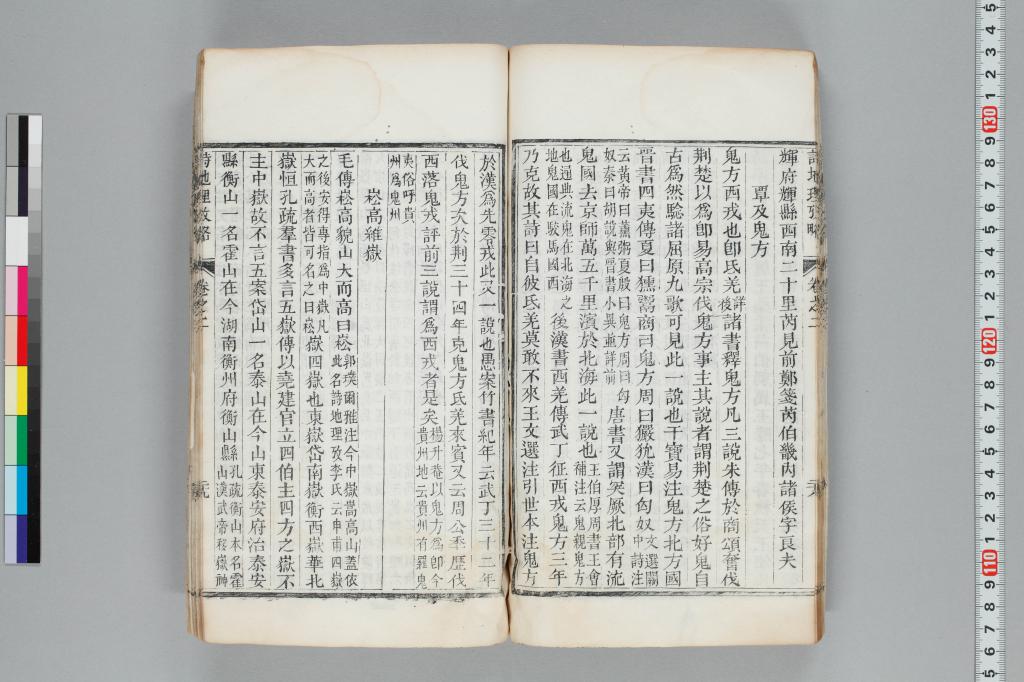 輝府輝縣西南二十里芮見前鄭箋芮伯畿內諸侯字良夫
覃及鬼方
鬼方西戎也卽氐羌詳後諸書釋鬼方凡三說朱傳於商頌奮伐
荆楚以爲卽易高宗伐鬼方事主其說者謂荆楚之俗好鬼自
古爲然騐諸屈原九歌可見此一說也干寶易注鬼方北方國
晉書四夷傳夏曰獯鬻商曰鬼方周曰玁狁漢曰匈奴文選關中詩注
云黃帝曰薰粥夏殷曰鬼方周曰匈奴秦曰胡說與晉書小異並詳前唐書又謂突厥北部有流
鬼國去京師萬五千里濱於北海此一說也王伯厚周書王會補注云鬼親鬼方
也通典流鬼在北海之地鬼國在駮馬國西後漢書西羌傳武丁征西戎鬼方三年
乃克故其詩曰自彼氐羌莫敢不來王文選注引世本注鬼方
於漢爲先零戎此又一說也愚案竹書紀年云武丁三十二年
伐鬼方次於荆三十四年克鬼方氐羌來賓又云周公季歷伐
西落鬼戎評前三說謂爲西戎者是矣楊升菴以鬼方爲卽今貴州地云貴州有羅鬼
夷俗呼貴州爲鬼州
崧高維嶽
毛傳崧高貌山大而高曰崧郭璞爾雅注今中嶽嵩高山蓋依此名詩地理攷李氏云申甫四嶽
之後安得專指爲中嶽凡大而高者皆可名之曰崧嶽四嶽也東嶽岱南嶽衡西嶽華北
嶽恒孔疏羣書多言五嶽傳以堯建官立四伯主四方之嶽不
主中嶽故不言五案岱山一名泰山在今山東泰安府治泰安
縣衡山一名霍山在今湖南衡州府衡山縣孔疏衡山本名霍山漢武帝移嶽神
詩地理攷略 卷之二